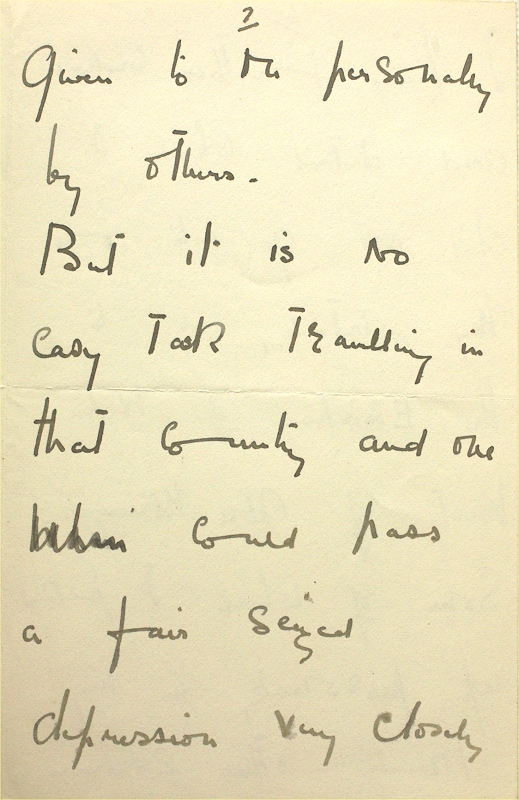 2
Given to me personally
by others.
But it is no
easy Task Travelling in
that Country and one
could pass
a fair seized
depression very closely